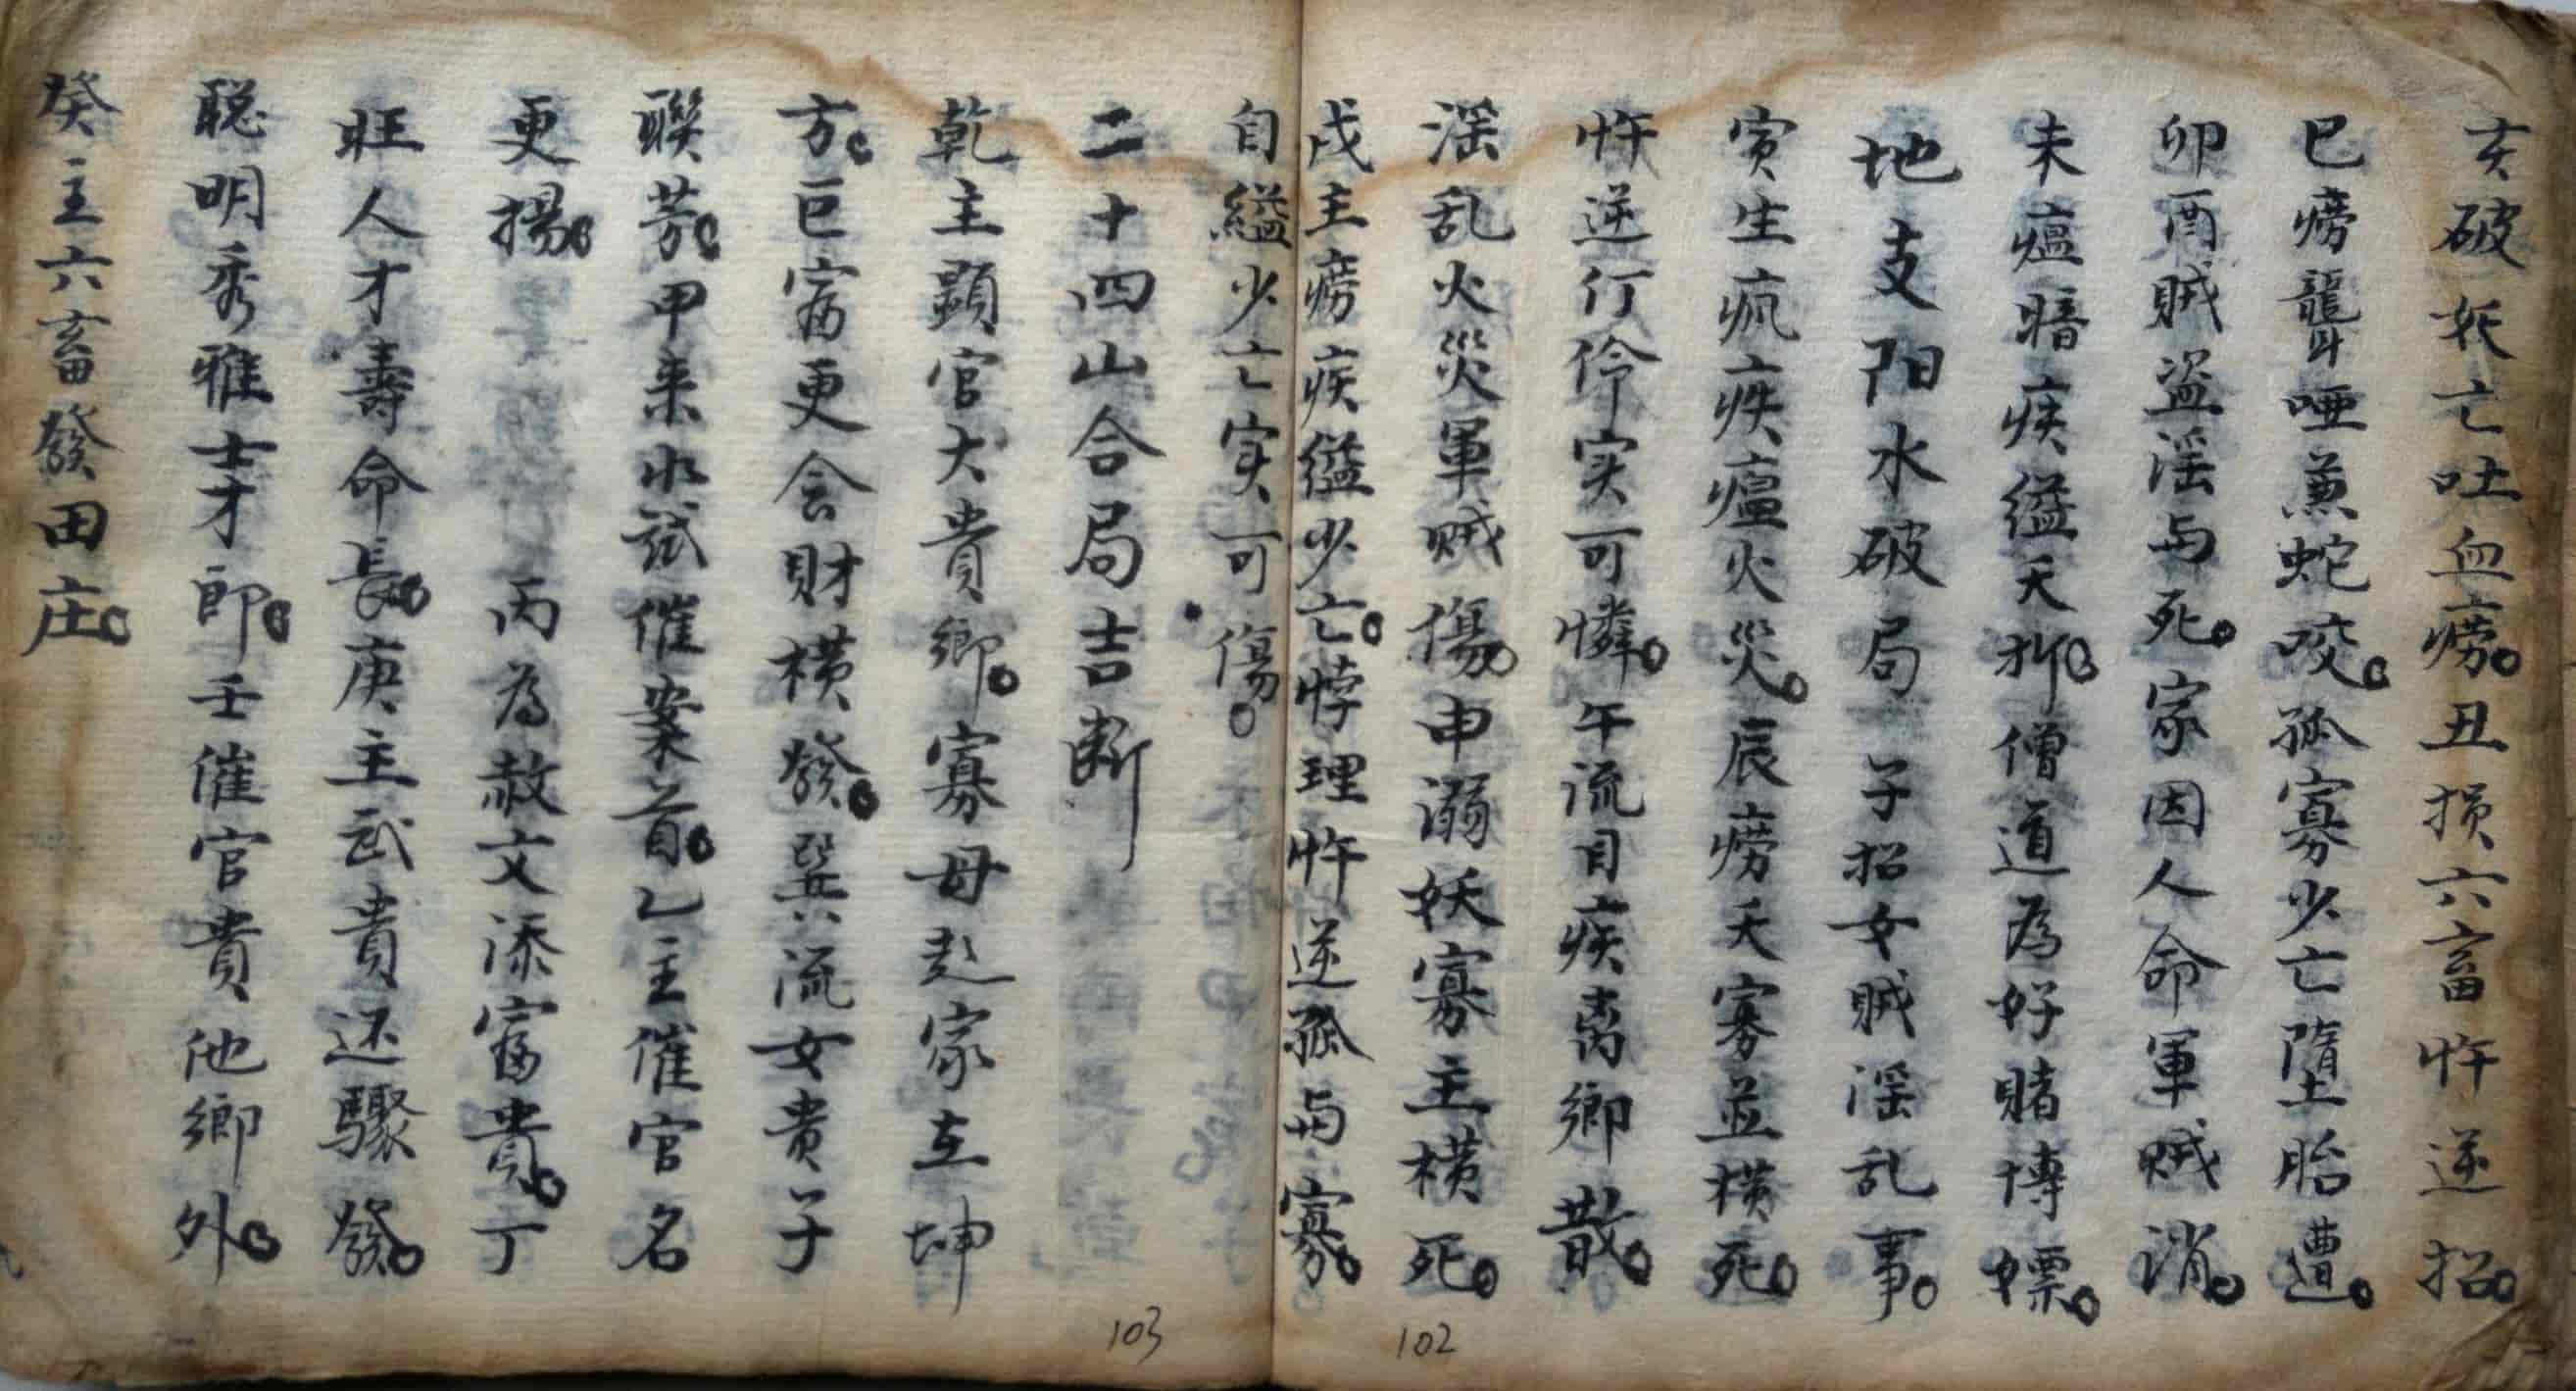 亥破妖亡吐血癆丑损六畜忤逆招
巳癆聾啞兼蛇咬孤寡少亡墮胎遭
卯酉贼盗淫与死家因人命軍贼消
未瘟暗疾缢夭折僧道為好賭博嫖
地支阳水破局子招女贼淫乱事
寅生疯疾瘟火災辰癆夭寡並横死
忤逆仃伶实可憐午流目疾离鄉散
淫乱火災軍贼傷申溺妖寡主横死
戌主癆疾缢少亡悖理忤逆孤与寡
自縊少亡实可傷
102
二十四山合局吉断
乾主顕官大貴鄉寡母起家立坤
方巨富更会財横發巽流女貴子
聯芳甲来水試催案首乙主催官名
更揚丙為赦文添富貴丁
旺人才壽命長庚主武貴还驟發
聡明秀雅士才郎壬催官貴他鄉外
癸主六畜發田庄
103